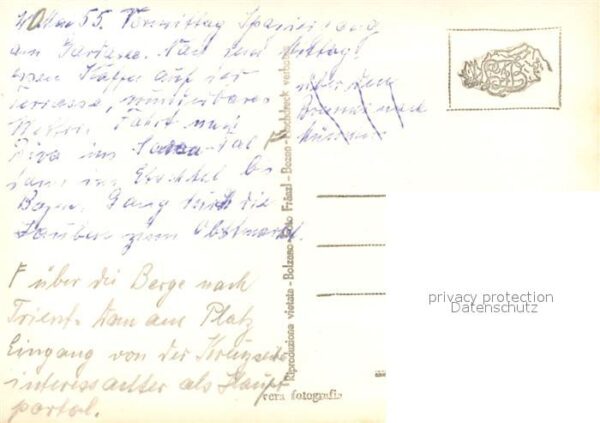 55. Vormittag Spaziergang
am Gardasee. Nach dem Mittag-
essen Kaffee auf der
Terrasse, wunderbares
Wetter. Fahrt nach
Riva ins Sarca-Tal
dann im Etschtal bis
Bozen. Gang durch die
Lauben zum Obstmarkt.
über den
Brenner nach
F über die Berge nach
Trient. Dom am Platz
Eingang von der Kreuzseite
interessanter als Haupt
portal.
Riproduzione vietata - Bolzano - Foto Fränzl - Bozen - Nachdruck verboten
vera fotografia
privacy protection
Datenschutz